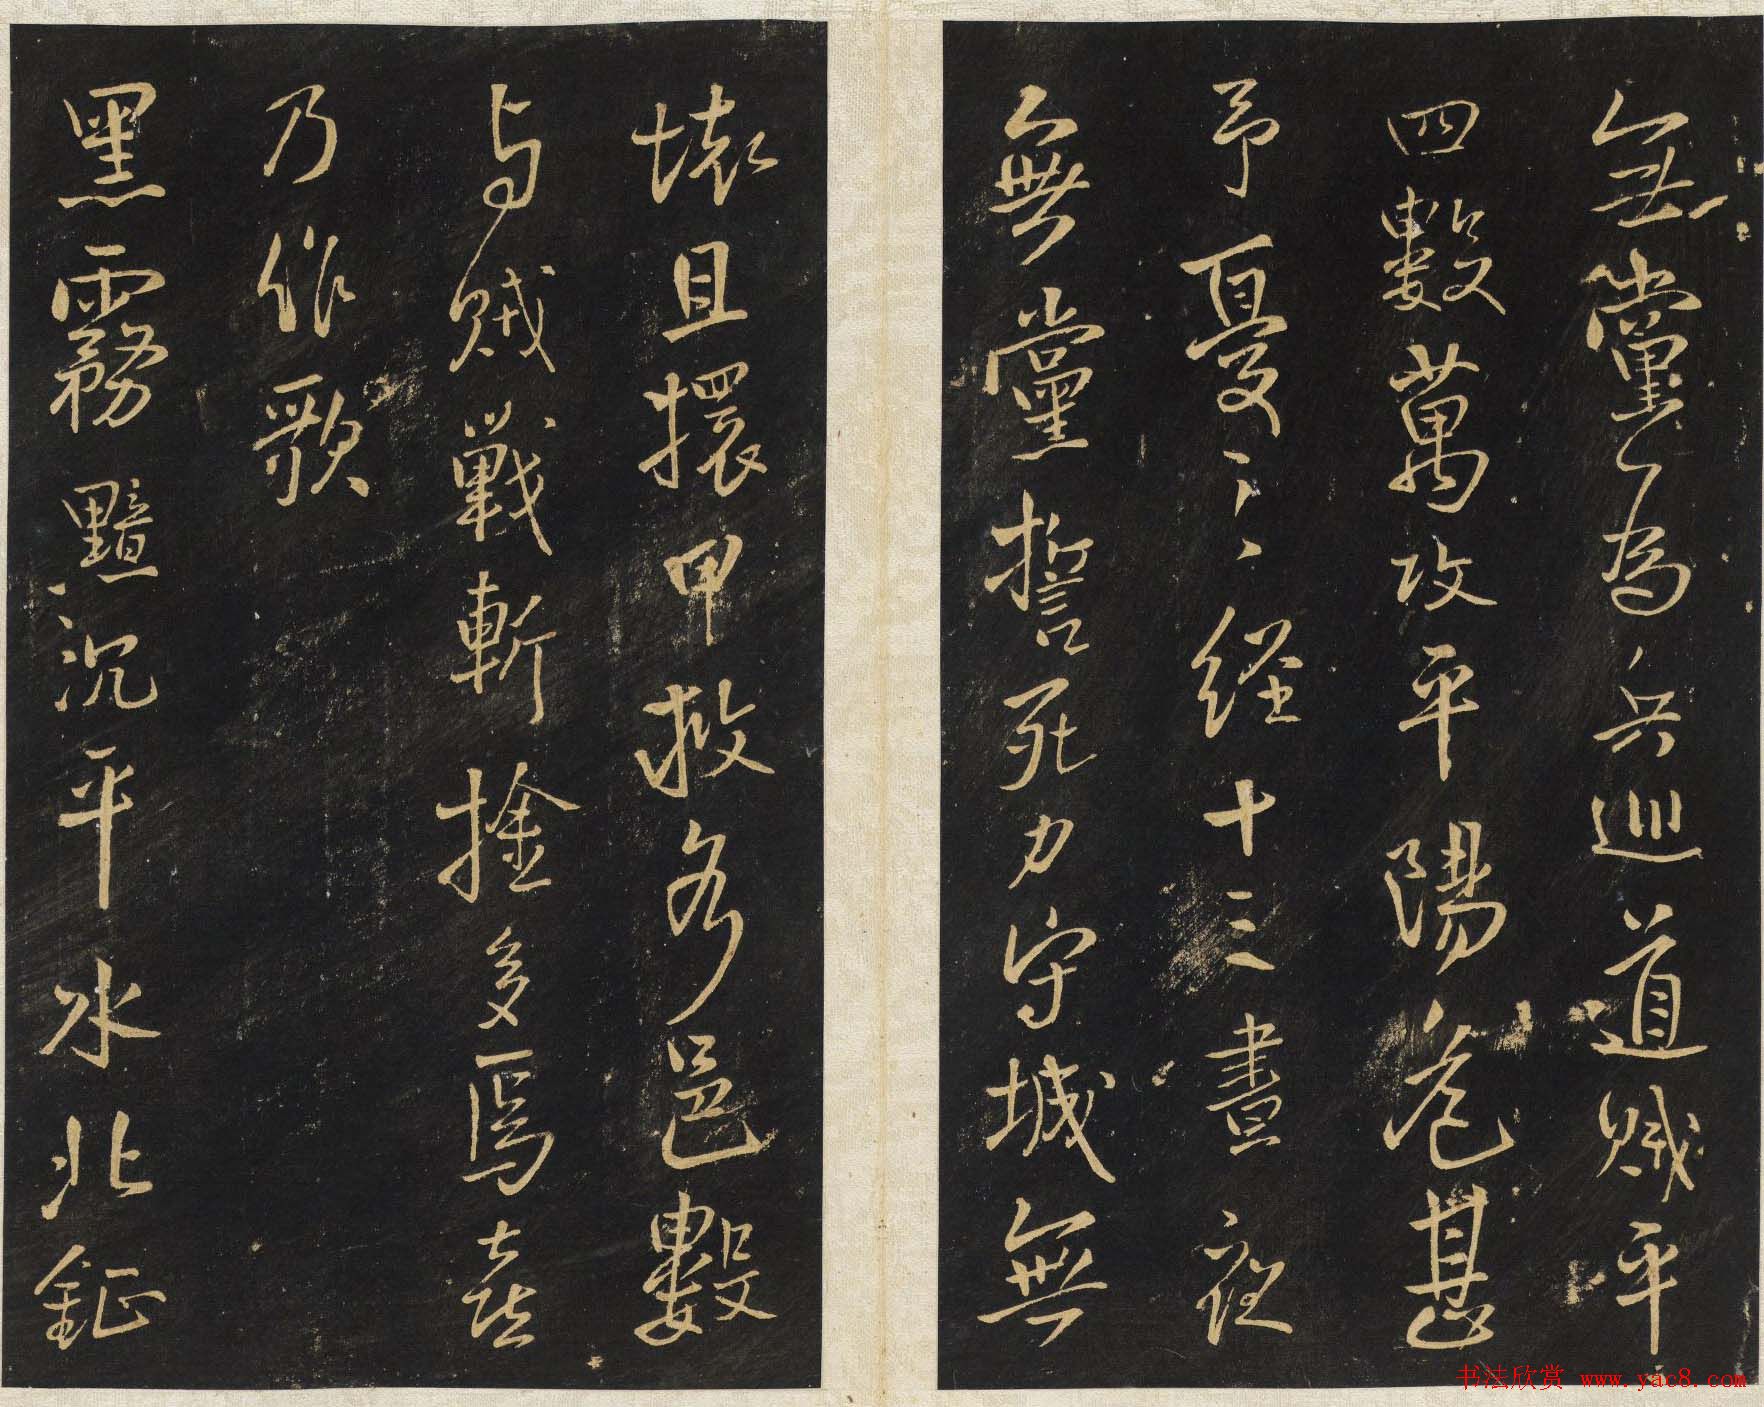 無黨〻為兵巡道賊平
四數萬攻平陽危甚
予憂〻〻經十三晝夜
無黨誓死力守城無
壞且擐甲救各邑數
与賊戰斬擒多焉喜
乃作歌
黑霧黯沉平水北鉦
书法欣赏 www.yac8.com